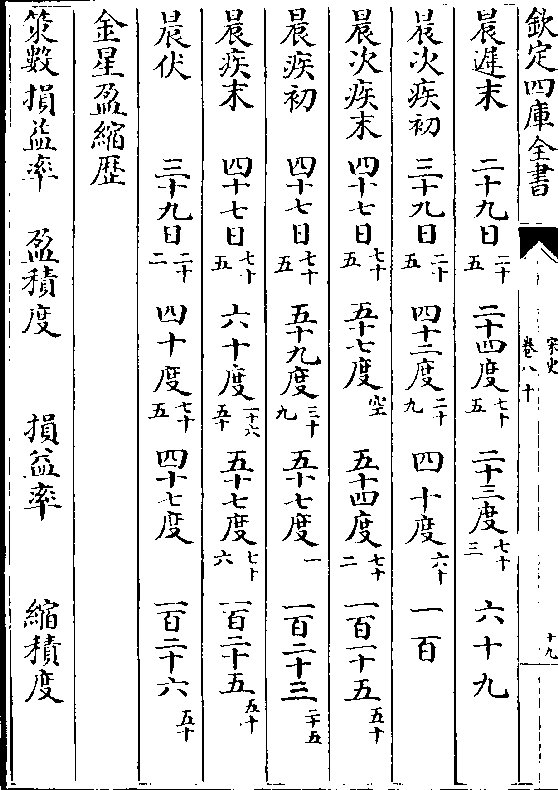 欽定四庫全書
宋史
卷八十
十九
晨遲末 二十九日二十五 二十四度七十五 二十三度七十三 六十九
晨次疾初 三十九日二十五 四十二度二十九 四十度六十 一百
晨次疾末 四十七日七十五 五十七度空 五十四度七十二 一百一十五五十
晨疾初 四十七日七十五 五十九度三十九 五十七度一 一百二十三二十五
晨疾末 四十七日七十五 六十度一十六五十 五十七度七十六 一百二十五五十
晨伏 三十九日二十二 四十度七十五 四十七度 一百二十六五十
金星盈縮歴
策數損益率 盈積度 損益率 縮積度